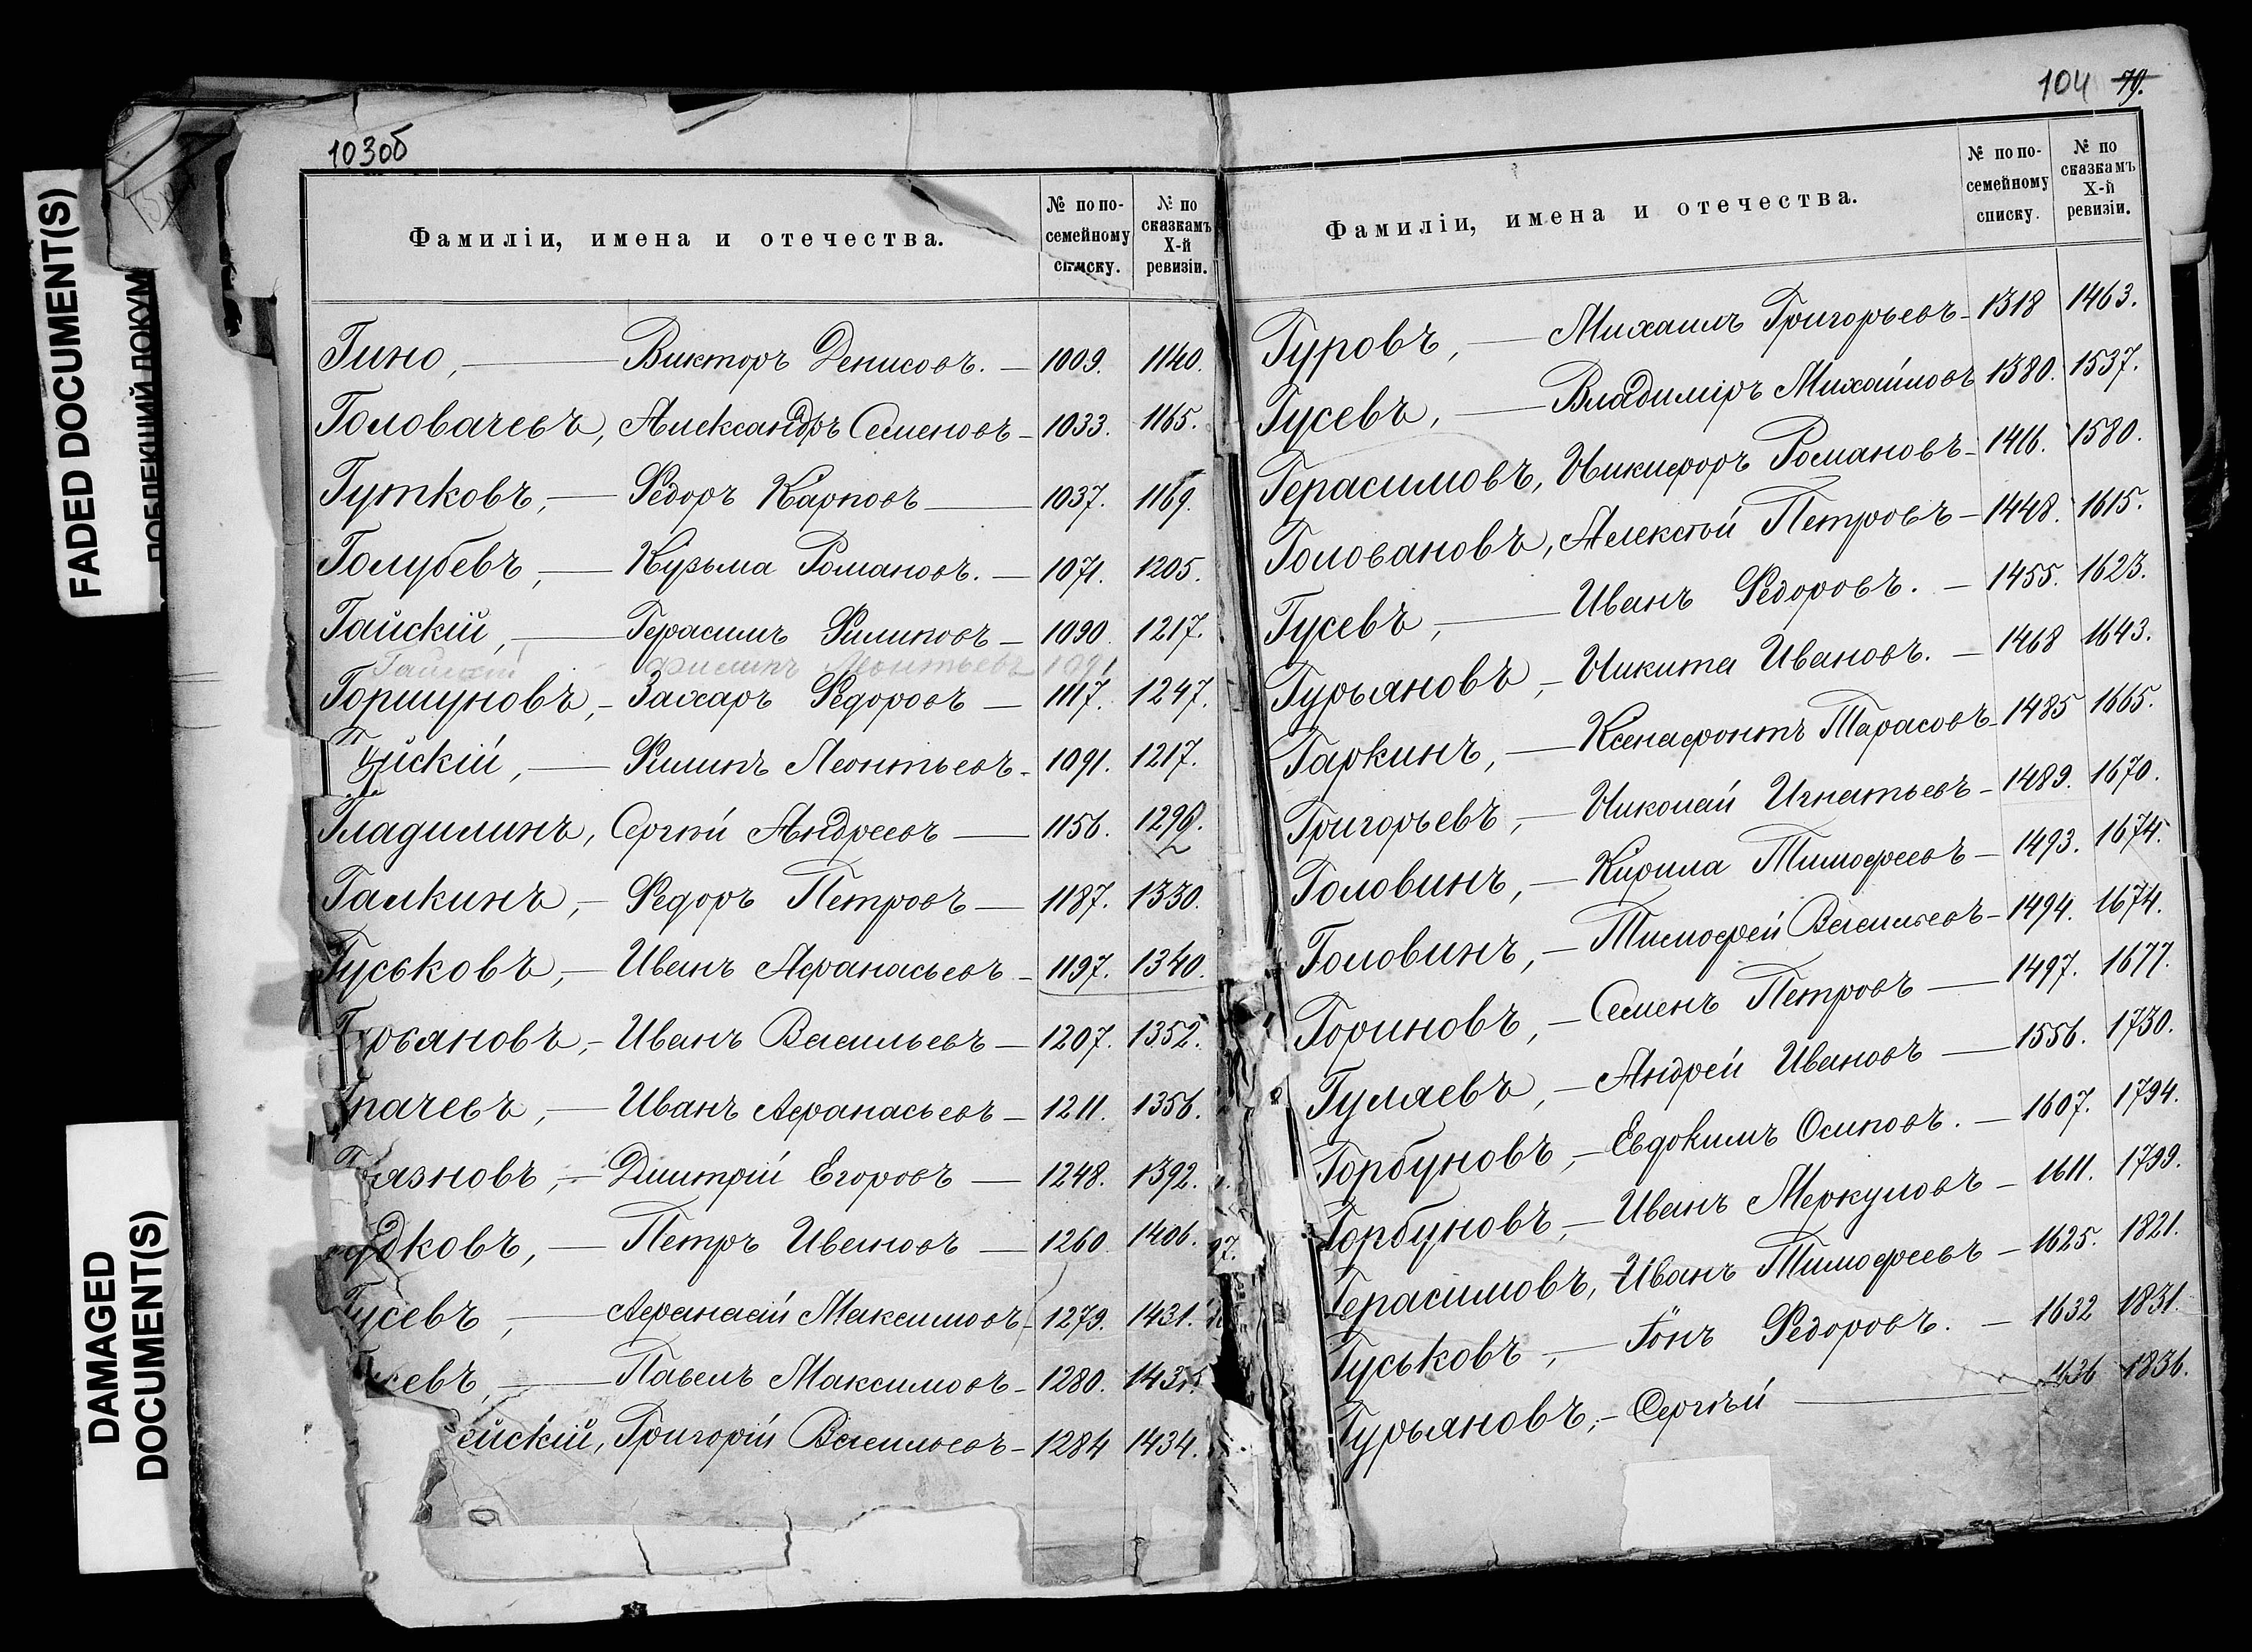 FADED DOCUMENT(S)
DAMAGED
DOCUMENT(S)
103об
Фамиліи, имена и отечества. № по по-семейному списку. № по сказкамъ X-й ревизіи.
Гино, — Викторъ Денисовъ. — 1009. 1140.
Головачевъ, Александръ Семеновъ — 1033. 1165.
Гутковъ, — Ѳедоръ Карповъ — 1037. 1169.
Голубевъ, — Кузьма Романовъ. — 1071. 1205.
Гайскій, — Герасимъ Филиповъ — 1090. 1217.
Гайскій Филипъ Леонтьевъ 1091
Горшуновъ, — Захаръ Ѳедоровъ — 1117. 1247.
Гайскій, — Филипъ Леонтьевъ — 1091. 1217.
Гладилинъ, Сергѣй Андреевъ — 1156. 1299.
Галкинъ, — Ѳедоръ Петровъ — 1187. 1330.
Гуськовъ, — Иванъ Аѳанасьевъ — 1197. 1340.
Гурьяновъ, — Иванъ Васильевъ — 1207. 1352.
Грачевъ, — Иванъ Аѳанасьевъ — 1211. 1356.
Грязновъ, — Дмитрій Егоровъ — 1248. 1392.
дковъ, — Петръ Ивановъ — 1260. 1406.
Гусевъ, — Аѳанасій Максимовъ — 1279. 1431.
Гусевъ, — Павелъ Максимовъ — 1280. 1431.
йскій, Григорій Васильевъ — 1284 1434.
104 79.
Фамиліи, имена и отечества. № по по-семейному списку. № по сказкамъ X-й ревизіи.
Гуровъ, — Михаилъ Григорьевъ — 1318 1463.
Гусевъ, — Владиміръ Михайловъ 1380. 1537.
Герасимовъ, Никифоръ Романовъ — 1416. 1580.
Головановъ, Алексѣй Петровъ — 1448. 1615.
Гусевъ, — Иванъ Ѳедоровъ. — 1455. 1623.
Гурьяновъ, — Никита Ивановъ. — 1468 1643.
Гаркинъ, — Ксенафонтъ Тарасовъ — 1485 1665.
Григорьевъ, — Николай Игнатьевъ — 1489. 1670.
Головинъ, — Кирила Тимофеевъ — 1493. 1674.
Головинъ, — Тимофей Васильевъ — 1494. 1674.
Гориновъ, — Семенъ Петровъ — 1497. 1677.
Гуляевъ, — Андрей Ивановъ — 1556. 1730.
Горбуновъ, — Евдокимъ Осиповъ. — 1607. 1794.
Горбуновъ, — Иванъ Меркуловъ — 1611. 1799.
Герасимовъ, Иванъ Тимофеевъ — 1625. 1821.
Гуськовъ, — Іонъ Ѳедоровъ. — 1632 1831.
Гурьяновъ, — Сергѣй — 1636 1836.